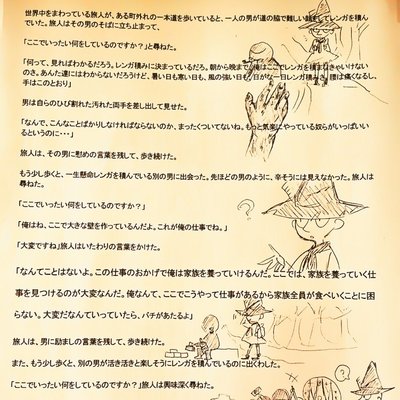 世界中をまわっている旅人が、ある町外れの一本道を歩いていると、一人の男が道の脇で難しい顔をしてレンガを積ん
でいた。旅人はその男のそばに立ち止まって、
「ここでいったい何をしているのですか？」と尋ねた。
「何って、見ればわかるだろう。レンガ積みに決まっているだろ。朝から晩まで、俺はここでレンガを積まなきゃいけない
のさ。あんた達にはわからないだろうけど、暑い日も寒い日も、風の強い日も、日がな一日レンガ積みさ。腰は痛くなるし、
手はこのとおり」
男は自らのひび割れた汚れた両手を差し出して見せた。
「なんで、こんなことばかりしなければならないのか、まったくついてないね。もっと気楽にやっている奴らがいっぱいい
るというのに・・・」
旅人は、その男に慰めの言葉を残して、歩き続けた。
もう少し歩くと、一生懸命レンガを積んでいる別の男に出会った。先ほどの男のように、辛そうには見えなかった。旅人は
尋ねた。
「ここでいったい何をしているのですか？」
「俺はね、ここで大きな壁を作っているんだよ。これが俺の仕事でね。」
「大変ですね」旅人はいたわりの言葉をかけた。
「なんてことはないよ。この仕事のおかげで俺は家族を養っていけるんだ。ここでは、家族を養っていく仕
事を見つけるのが大変なんだ。俺なんて、ここでこうやって仕事があるから家族全員が食べいくことに困
らない。大変だなんていっていたら、バチがあたるよ」
旅人は、男に励ましの言葉を残して、歩き続けた。
また、もう少し歩くと、別の男が活き活きと楽しそうにレンガを積んでいるのに出くわした。
「ここでいったい何をしているのですか？」旅人は興味深く尋ねた。
?
?